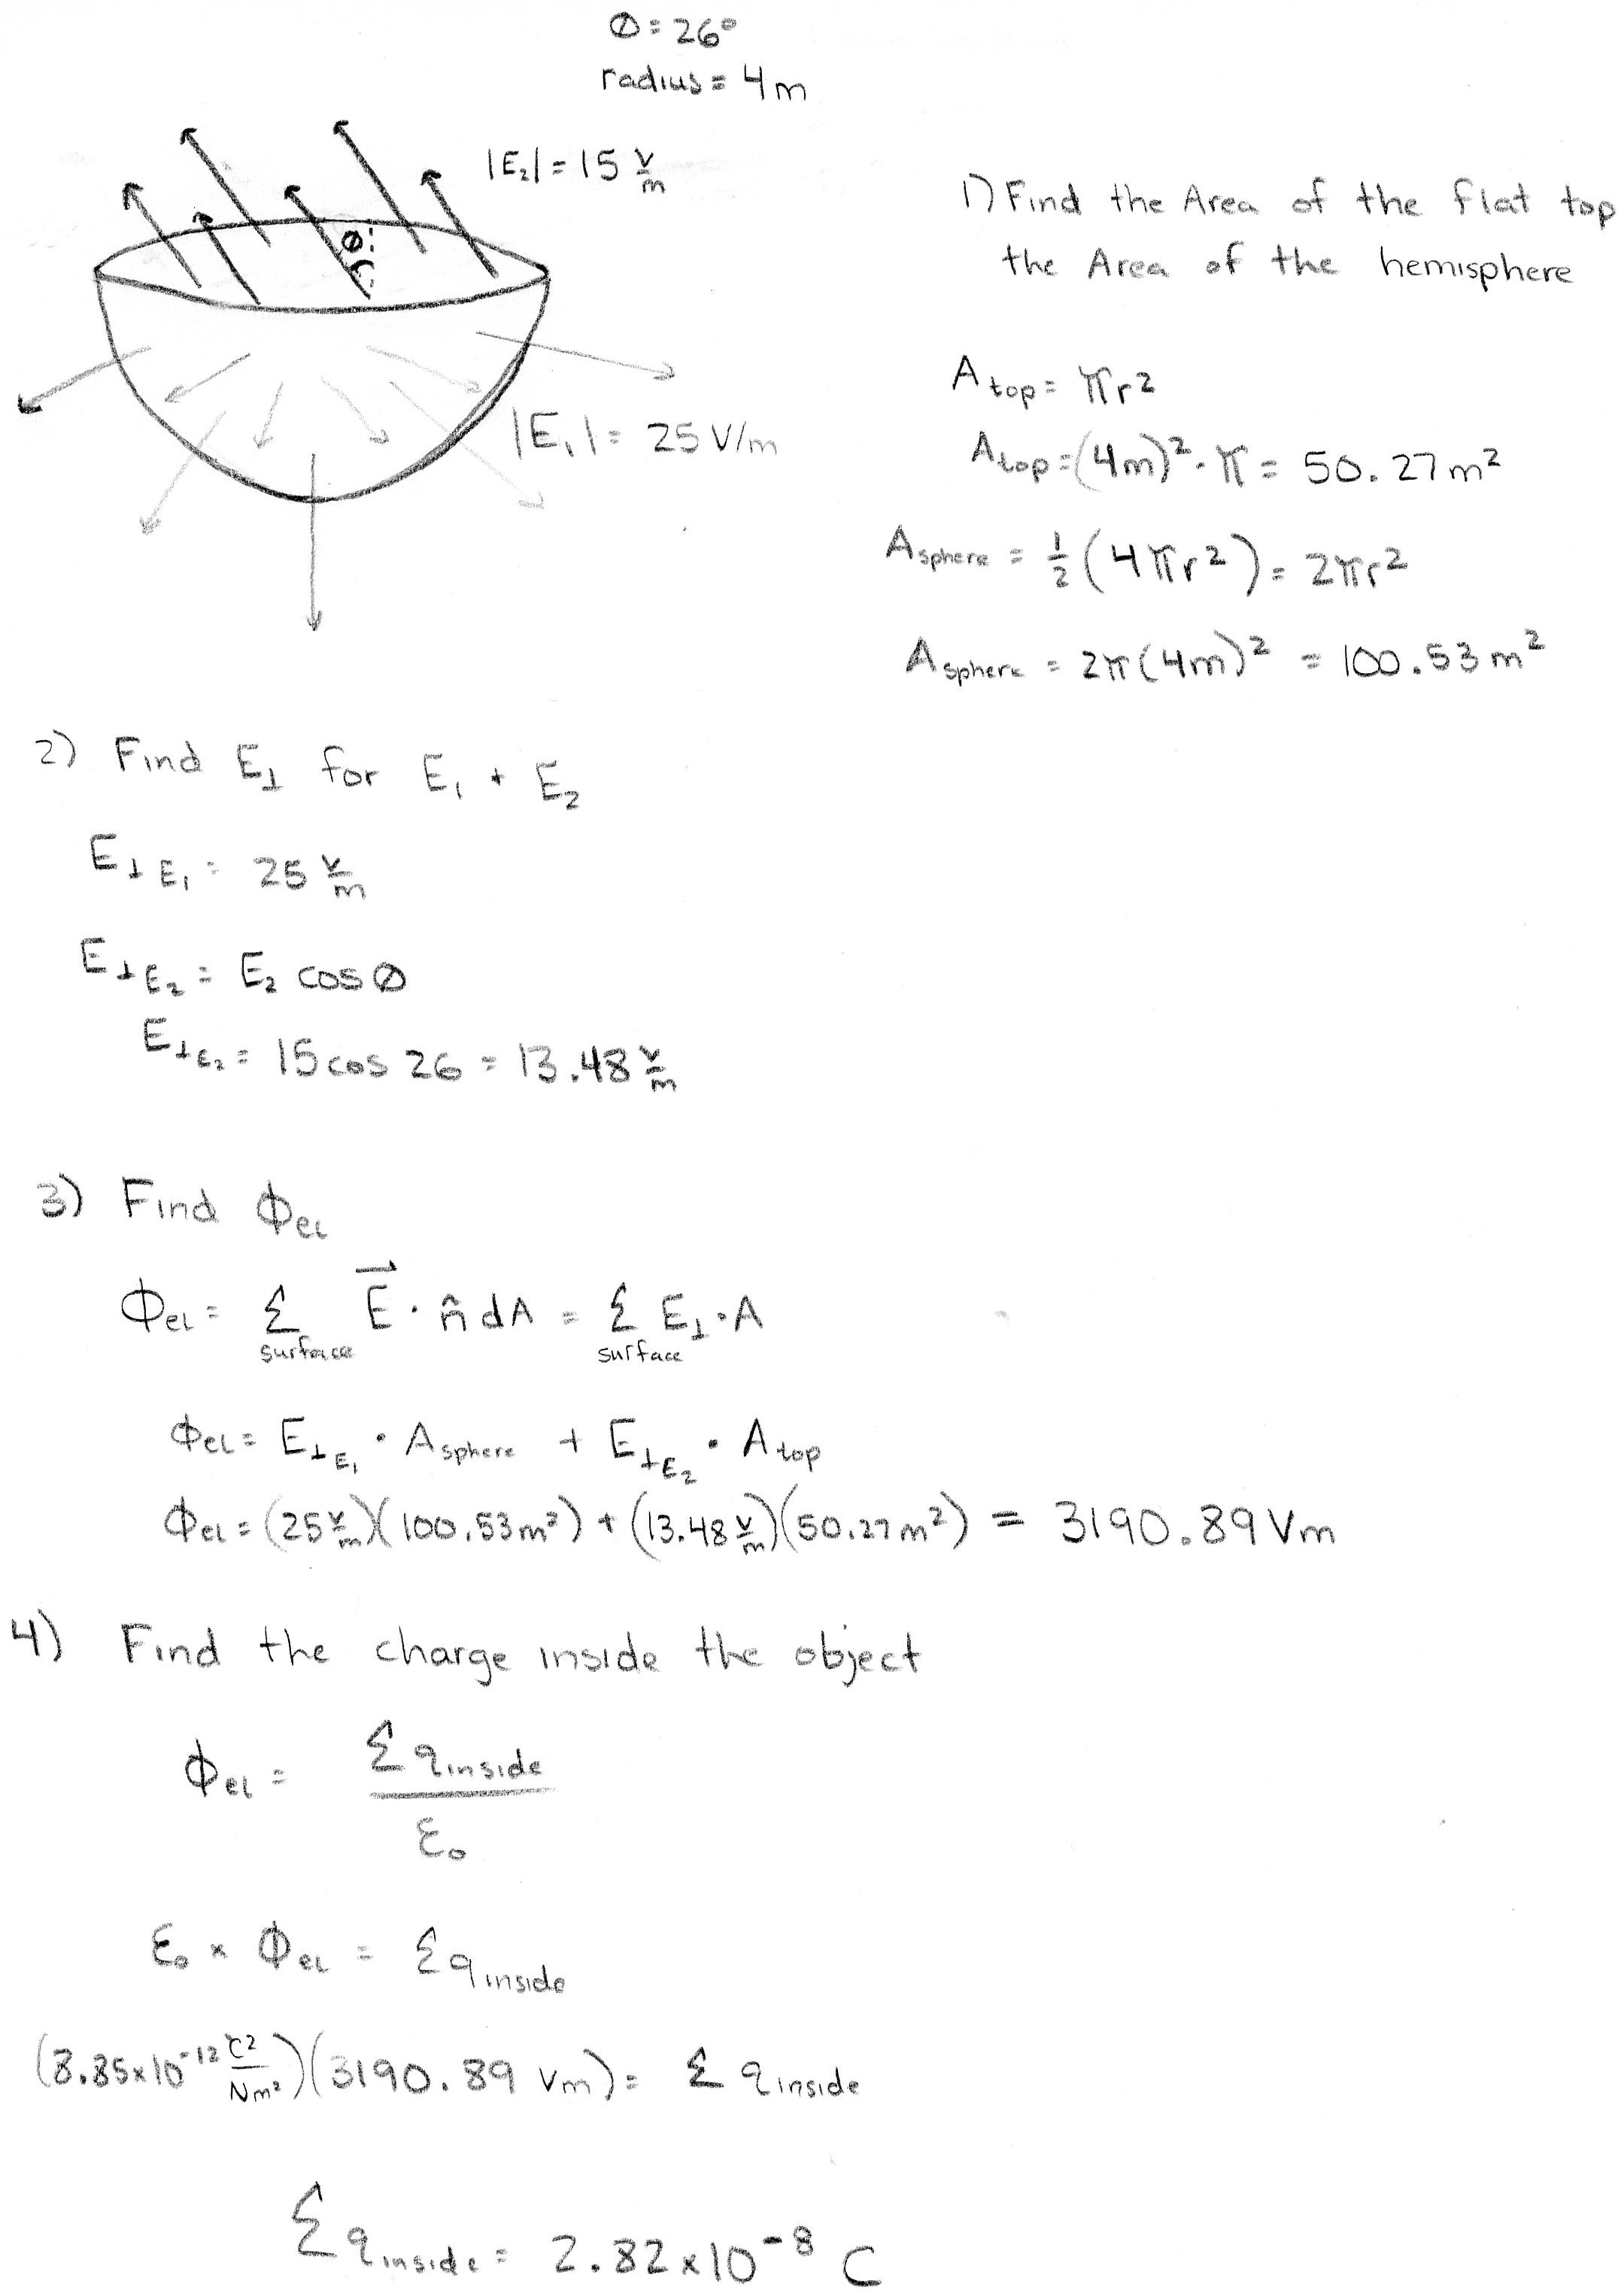 Ø = 26°
radius = 4m
|E₂| = 15 V/m
Ø
|E₁| = 25 V/m
1) Find the Area of the flat top
the Area of the hemisphere
A top = πr²
A top = (4m)² · π = 50.27m²
A sphere = ½(4πr²) = 2πr²
A sphere = 2π(4m)² = 100.53m²
2) Find E⊥ for E₁ + E₂
E⊥E₁ = 25 V/m
E⊥E₂ = E₂ cos Ø
E⊥E₂ = 15 cos 26 = 13.48 V/m
3) Find Φel
Φel = Σ surface E⃗ · n̂ dA = Σ surface E⊥ · A
Φel = E⊥E₁ · A sphere + E⊥E₂ · A top
Φel = (25 V/m)(100.53m²) + (13.48 V/m)(50.27m²) = 3190.89 Vm
4) Find the charge inside the object
Φel = Σ q inside / ε₀
ε₀ × Φel = Σ q inside
(8.85×10⁻¹² C²/Nm²)(3190.89 Vm) = Σ q inside
Σ q inside = 2.82×10⁻⁸ C